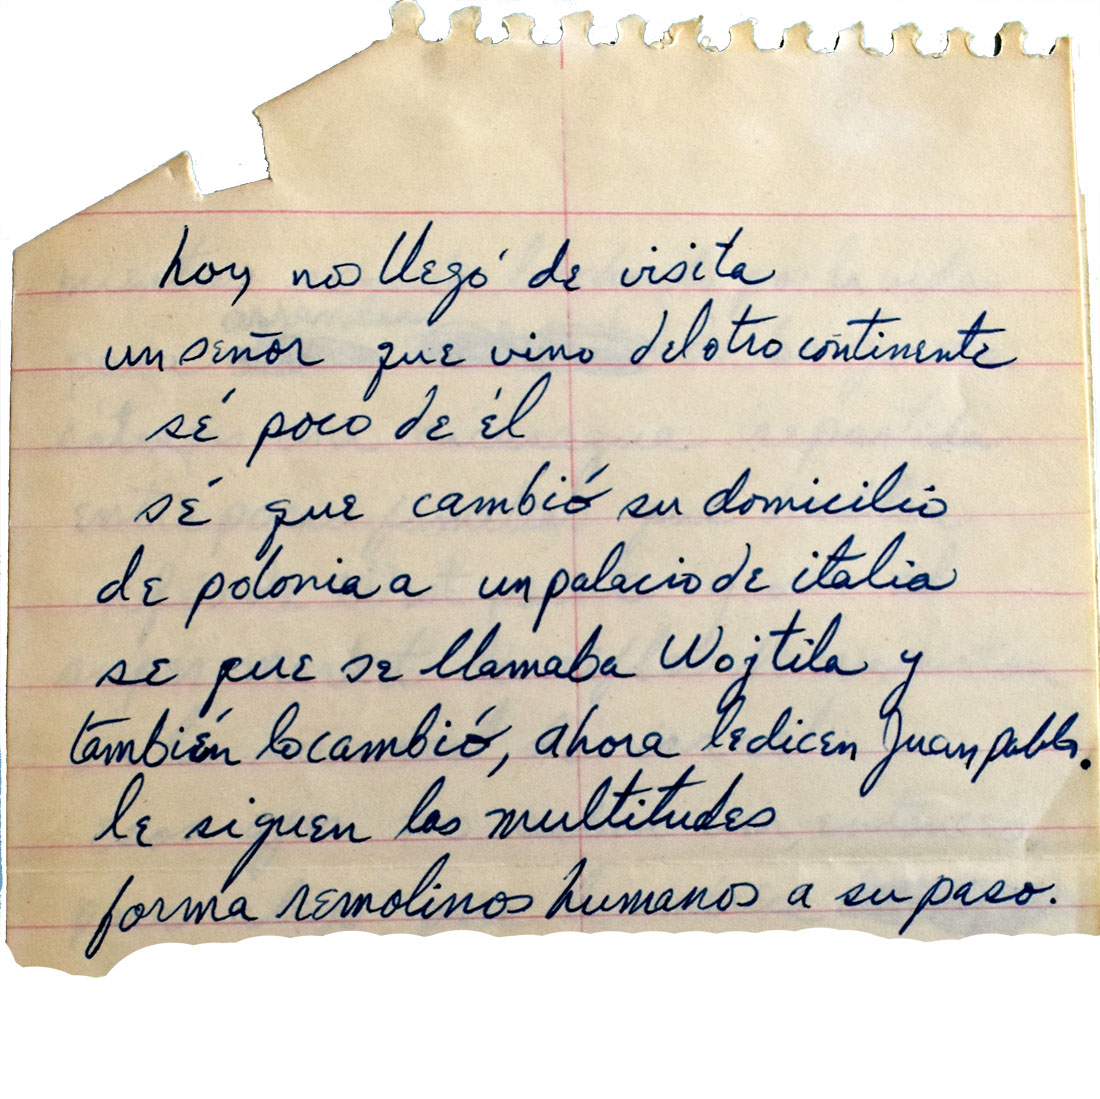 hoy nos llegó de visita
un señor que vino del otro continente
sé poco de él
sé que cambió su domicilio
de polonia a un palacio de italia
se que se llamaba Wojtila y
también lo cambió, ahora le dicen Juan pablo.
le siguen las multitudes
forma remolinos humanos a su paso.